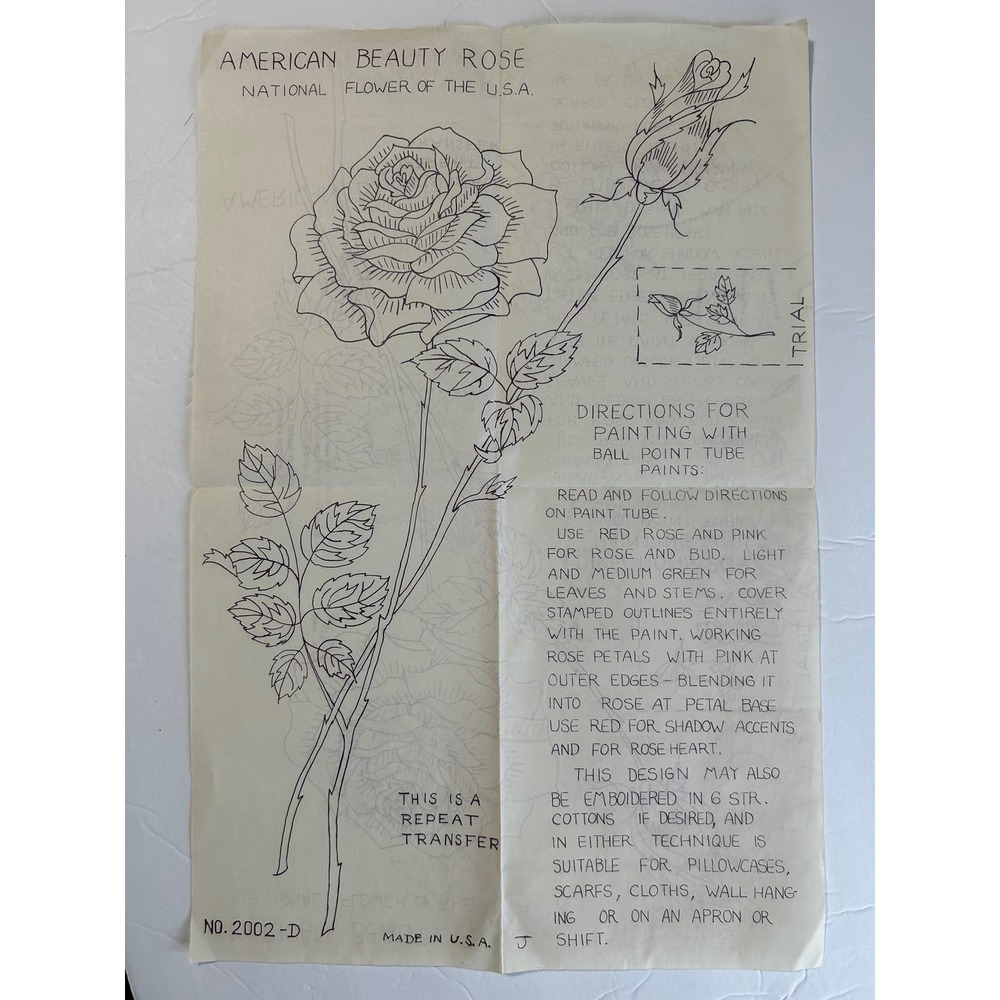 AMERICAN BEAUTY ROSE
NATIONAL FLOWER OF THE U.S.A.
TRIAL
DIRECTIONS FOR
PAINTING WITH
BALL POINT TUBE
PAINTS:
READ AND FOLLOW DIRECTIONS
ON PAINT TUBE.
USE RED ROSE AND PINK
FOR ROSE AND BUD. LIGHT
AND MEDIUM GREEN FOR
LEAVES AND STEMS. COVER
STAMPED OUTLINES ENTIRELY
WITH THE PAINT. WORKING
ROSE PETALS WITH PINK AT
OUTER EDGES - BLENDING IT
INTO ROSE AT PETAL BASE
USE RED FOR SHADOW ACCENTS
AND FOR ROSE HEART.
THIS DESIGN MAY ALSO
BE EMBOIDERED IN 6 STR.
COTTONS IF DESIRED, AND
IN EITHER TECHNIQUE IS
SUITABLE FOR PILLOWCASES,
SCARFS, CLOTHS, WALL HANG-
ING OR ON AN APRON OR
SHIFT.
THIS IS A
REPEAT
TRANSFER
NO. 2002-D
MADE IN U.S.A.
J